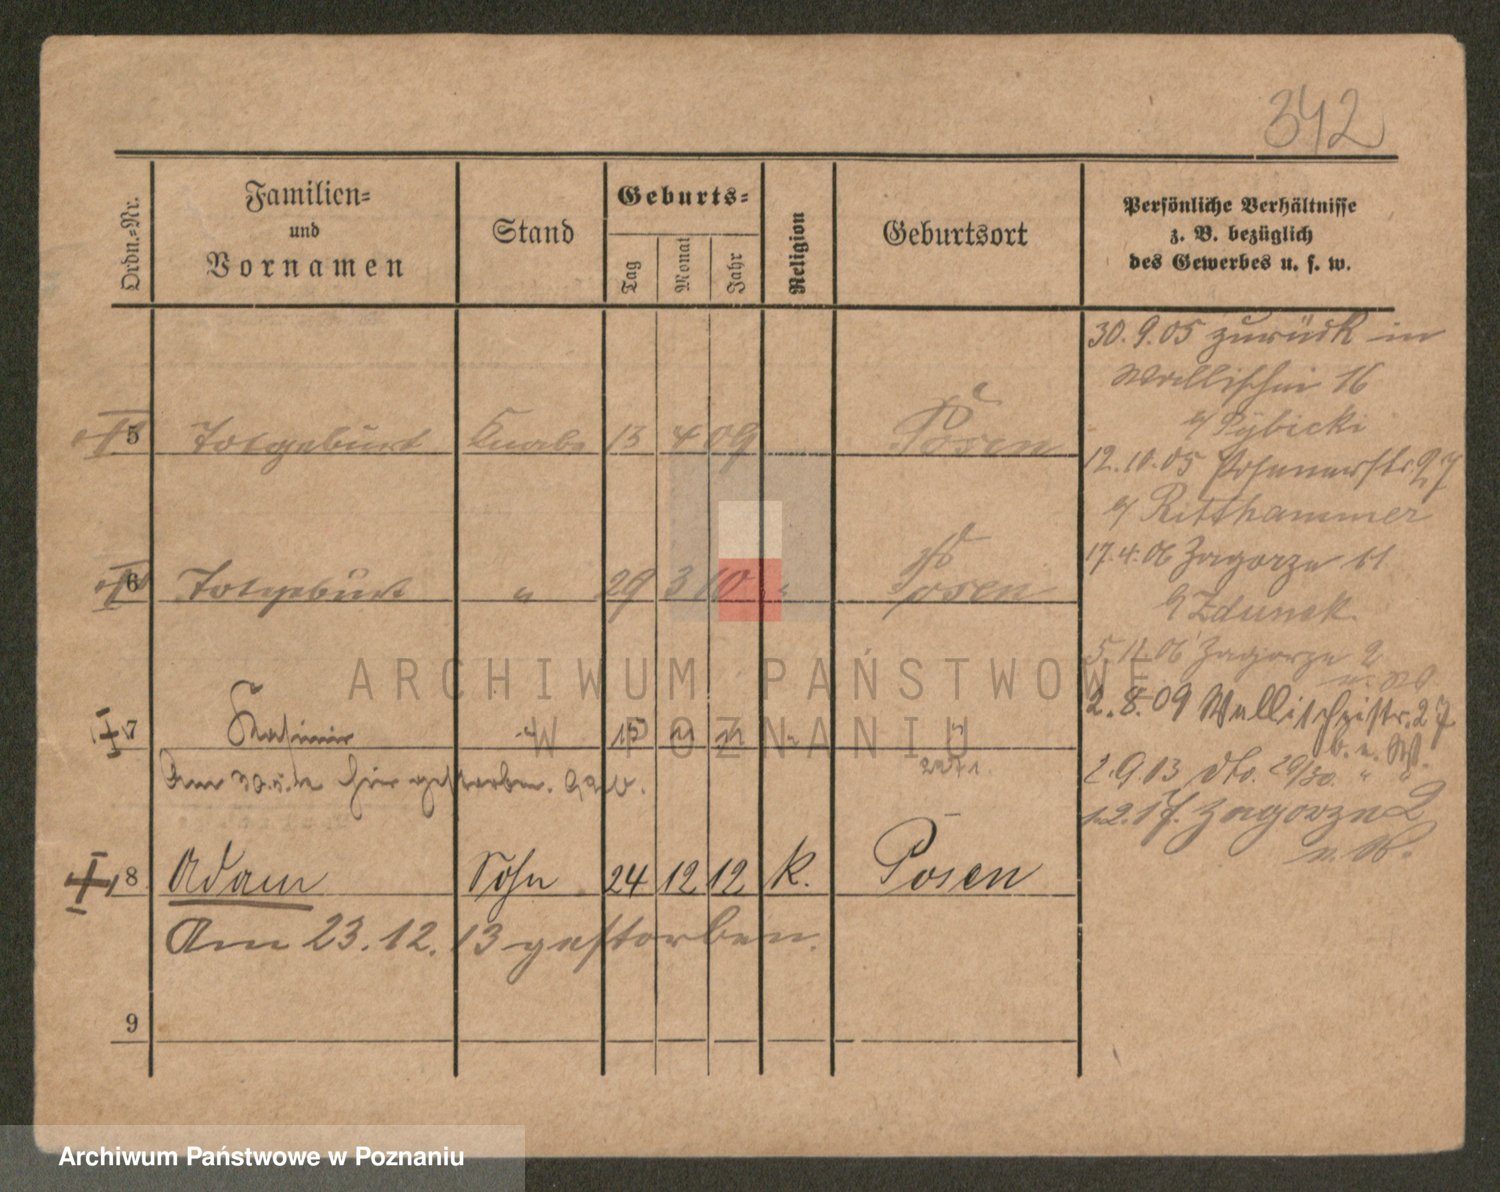 342
Ordn.=Nr.
Familien=
und
Vornamen
Stand
Geburts=
Tag
Monat
Jahr
Religion
Geburtsort
Persönliche Verhältnisse
z. B. bezüglich
des Gewerbes u. s. w.
5 Totgeburt Knabe 13 4 09 Posen
6 Totgeburt " 29 3 10 " Posen
7 Kasimir " 15
Am 30.5. hier gestorben.
8 Adam Sohn 24 12 12 k. Posen
Am 23.12.13 gestorben.
9
30.9.05 zurück in
Wallischei 16
b/ Rybicki
12.10.05 Posenerstr. 27
b/ Ritthammer
17.4.06 Zagorze 11
b/ Zdunek
5.11.06 Zagorze 2
2.8.09 Wallischeistr. 27
b. u. W.
2.9.13 dto. 29/30. " "
1.2.17. Zagorze 2
ARCHIWUM PAŃSTWOWE
W POZNANIU
Archiwum Państwowe w Poznaniu